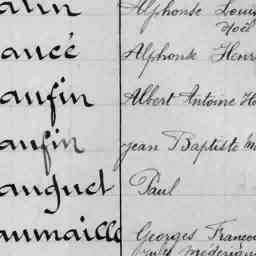 Alphonse Louis
Noël
ancé Alphonse Henri
aufin Albert Antoine
aufin Jean Baptiste
auquet Paul
aumaille Georges François
Jules Frédéric